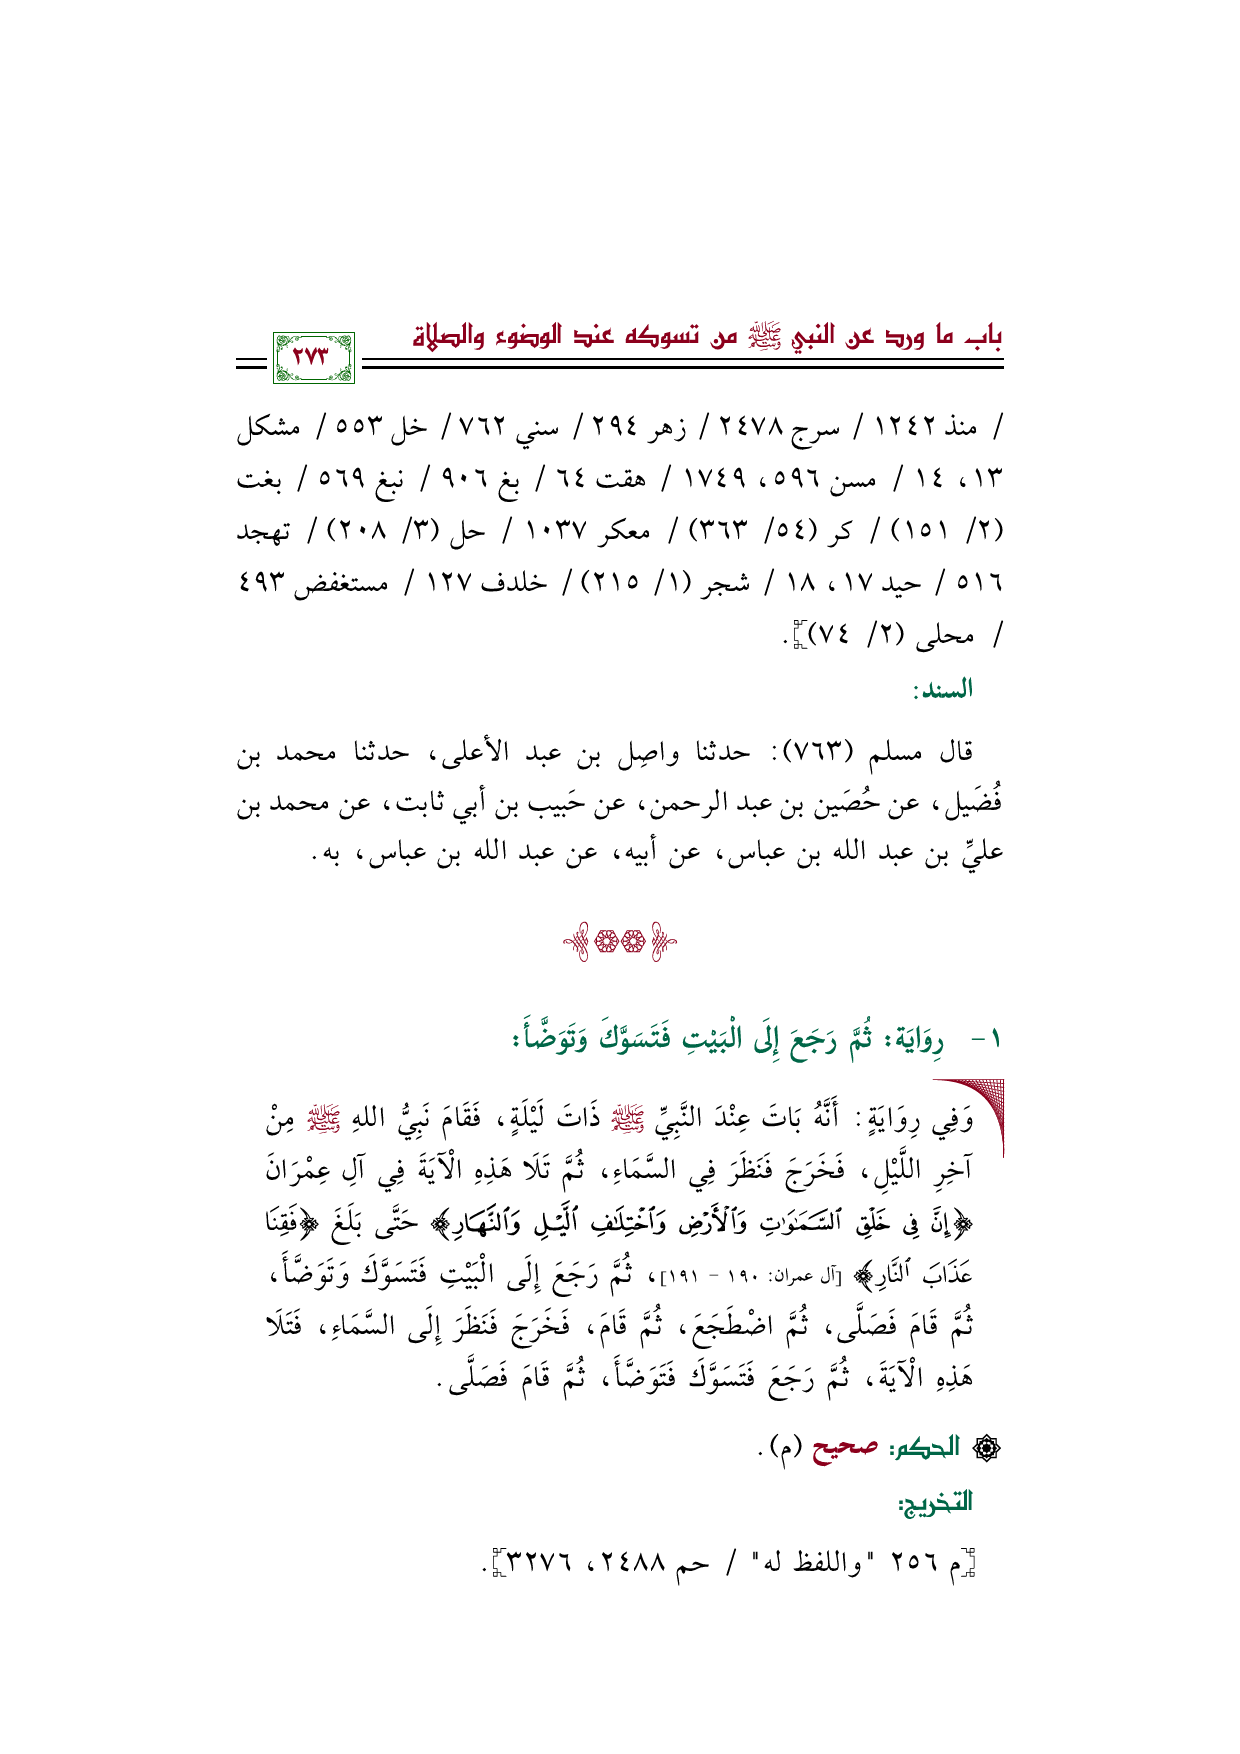 باب ما ورد عن النبي ﷺ من تسوكه عند الوضوء والصلاة
٢٧٣
/ منذ ١٢٤٢ / سرج ٢٤٧٨ / زهر ٢٩٤ / سني ٧٦٢ / خل ٥٥٣ / مشكل
١٣، ١٤ / مسن ٥٩٦، ١٧٤٩ / هقت ٦٤ / بغ ٩٠٦ / نبغ ٥٦٩ / بغت
(٢/ ١٥١) / كر (٥٤/ ٣٦٣) / معكر ١٠٣٧ / حل (٣/ ٢٠٨) / تهجد
٥١٦ / حيد ١٧، ١٨ / شجر (١/ ٢١٥) / خلدف ١٢٧ / مستغفض ٤٩٣
/ محلى (٢/ ٧٤)].
السند:
قال مسلم (٧٦٣): حدثنا واصِل بن عبد الأعلى، حدثنا محمد بن
فُضَيل، عن حُصَين بن عبد الرحمن، عن حَبيب بن أبي ثابت، عن محمد بن
عليِّ بن عبد الله بن عباس، عن أبيه، عن عبد الله بن عباس، به.
١- رِوَايَة: ثُمَّ رَجَعَ إِلَى الْبَيْتِ فَتَسَوَّكَ وَتَوَضَّأَ:
وَفِي رِوَايَةٍ: أَنَّهُ بَاتَ عِنْدَ النَّبِيِّ ﷺ ذَاتَ لَيْلَةٍ، فَقَامَ نَبِيُّ اللهِ ﷺ مِنْ
آخِرِ اللَّيْلِ، فَخَرَجَ فَنَظَرَ فِي السَّمَاءِ، ثُمَّ تَلَا هَذِهِ الْآيَةَ فِي آلِ عِمْرَانَ
﴿إِنَّ فِي خَلْقِ ٱلسَّمَٰوَٰتِ وَٱلْأَرْضِ وَٱخْتِلَٰفِ ٱلَّيْلِ وَٱلنَّهَارِ﴾ حَتَّى بَلَغَ ﴿فَقِنَا
عَذَابَ ٱلنَّارِ﴾ [آل عمران: ١٩٠ - ١٩١]، ثُمَّ رَجَعَ إِلَى الْبَيْتِ فَتَسَوَّكَ وَتَوَضَّأَ،
ثُمَّ قَامَ فَصَلَّى، ثُمَّ اضْطَجَعَ، ثُمَّ قَامَ، فَخَرَجَ فَنَظَرَ إِلَى السَّمَاءِ، فَتَلَا
هَذِهِ الْآيَةَ، ثُمَّ رَجَعَ فَتَسَوَّكَ فَتَوَضَّأَ، ثُمَّ قَامَ فَصَلَّى.
الحكم: صحيح (م).
التخريج:
[م ٢٥٦ "واللفظ له" / حم ٢٤٨٨، ٣٢٧٦].